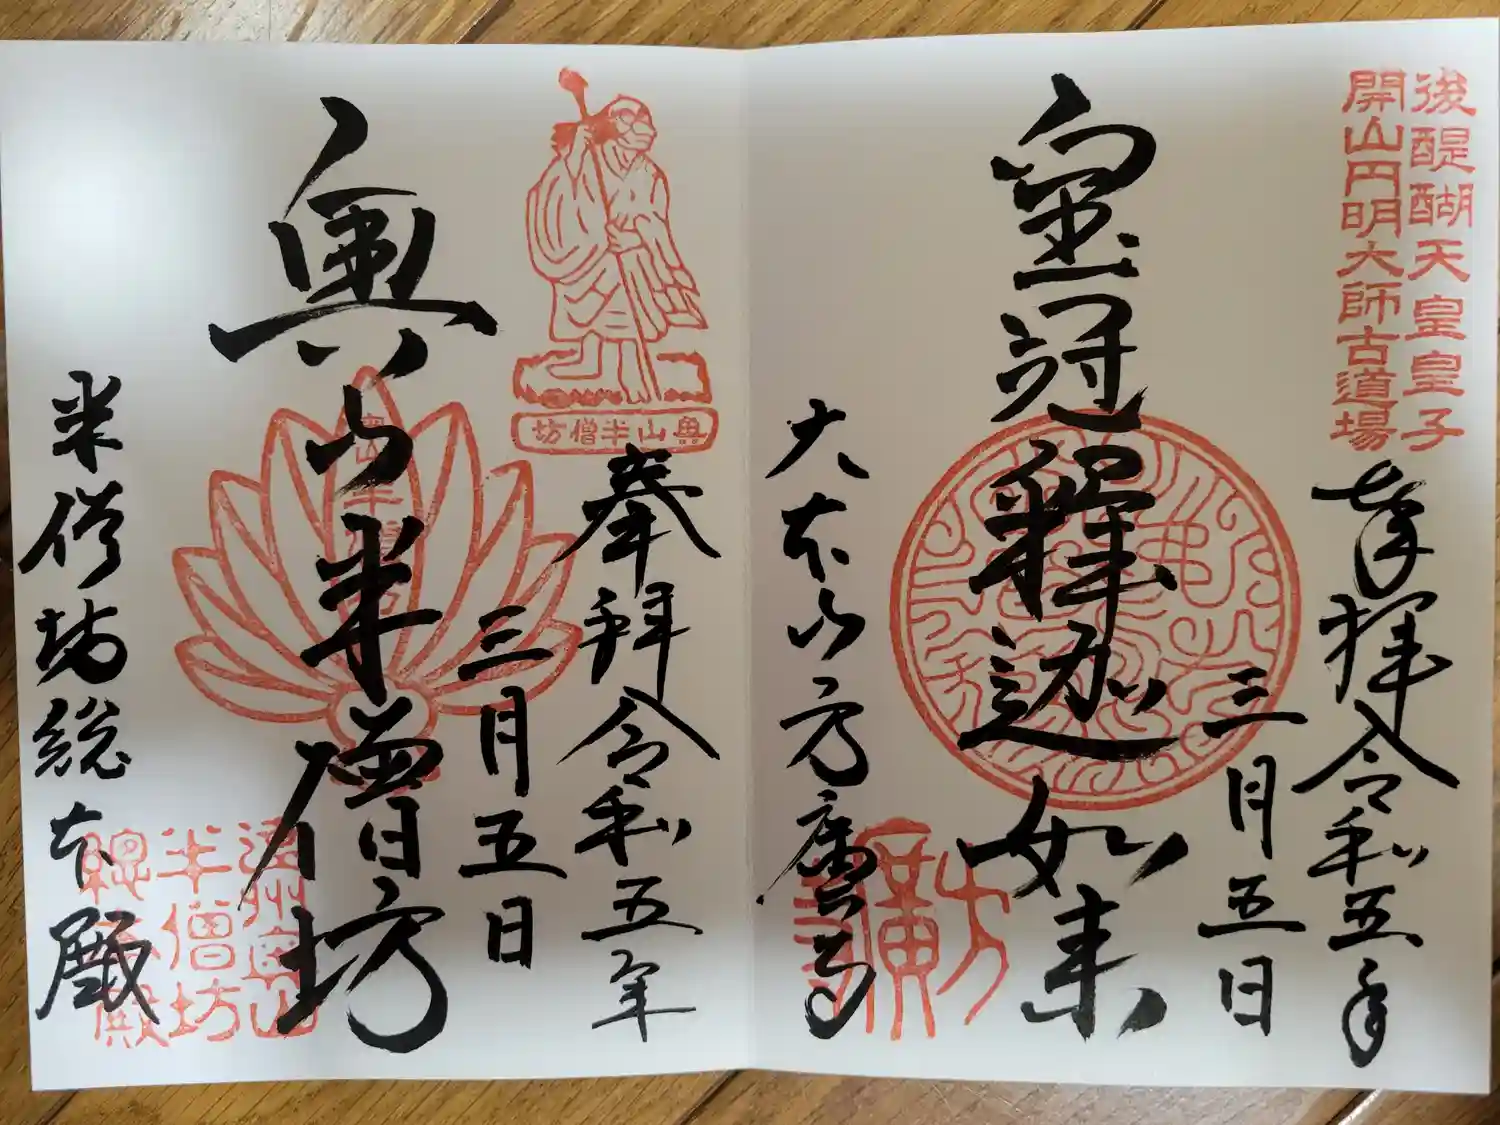 後醍醐天皇皇子
開山円明大師古道場
奉拝令和五年
三月五日
宝冠釋迦如来
大本山方廣寺
方廣寺
奥山半僧坊
奉拝令和五年
三月五日
奥山半僧坊
半僧坊総本殿
遠州奥山
半僧坊
總本殿